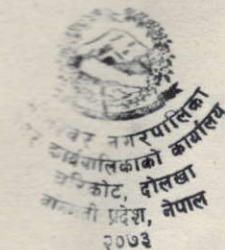 नगरपालिका
कार्यपालिकाको कार्यालय
चरिकोट, दोलखा
बागमती प्रदेश, नेपाल
२०७३